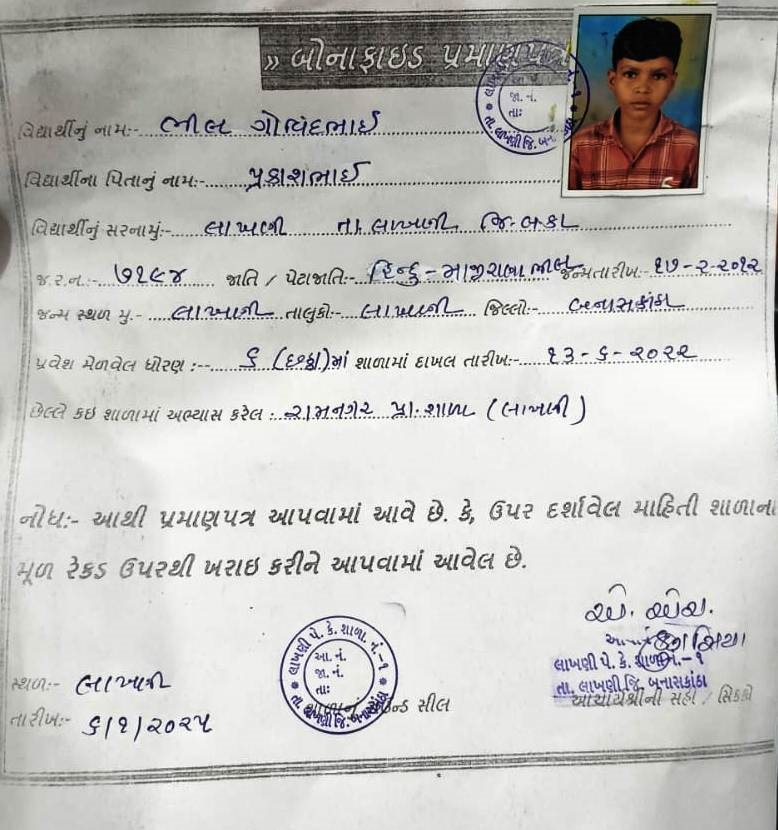 » બોનાફાઇડ પ્રમાણપત્ર
વિદ્યાર્થીનું નામ:- ભીલ ગોવિંદભાઈ
વિદ્યાર્થીના પિતાનું નામ:- પ્રકાશભાઈ
વિદ્યાર્થીનું સરનામું:- લાખણી તા. લાખાની જિ-બકા
જ.ર.ન.:- ૭૧૯૪ જાતિ / પેટાજાતિ:- હિન્દુ - ભીલ જન્મ તારીખ:- ૧૭-૨-૨૦૧૨
જન્મ સ્થળ મુ.- લાખાની તાલુકો:- લાખાની જિલ્લો:- બનાસકાંઠા
પ્રવેશ મેળવેલ ધોરણ :-- ૬ (છઠ્ઠા)માં શાળામાં દાખલ તારીખ:- ૧૩-૬-૨૦૨૨
છેલ્લે કઇ શાળામાં અભ્યાસ કરેલ : રામનગર પ્રા. શાળા (લાખાની)
નોધ:- આથી પ્રમાણપત્ર આપવામાં આવે છે. કે, ઉપર દર્શાવેલ માહિતી શાળાના
મૂળ રેકડ ઉપરથી ખરાઇ કરીને આપવામાં આવેલ છે.
લાખણી પે. કે. શાળા નં.-૧
આ. નં.
જા. નં.
તાઃ
તા. લાખણી જિ. બનાસકાંઠા
આચાર્ય
લાખણી પે. કે. શાળા નં.-૧
તા. લાખણી,જિ. બનાસકાંઠા
સ્થળ:- લાખાની
શાળાનું રાઉન્ડ સીલ
આચાર્યશ્રીની સહી / સિક્કો
તારીખ:- ૬/૧/૨૦૨૫